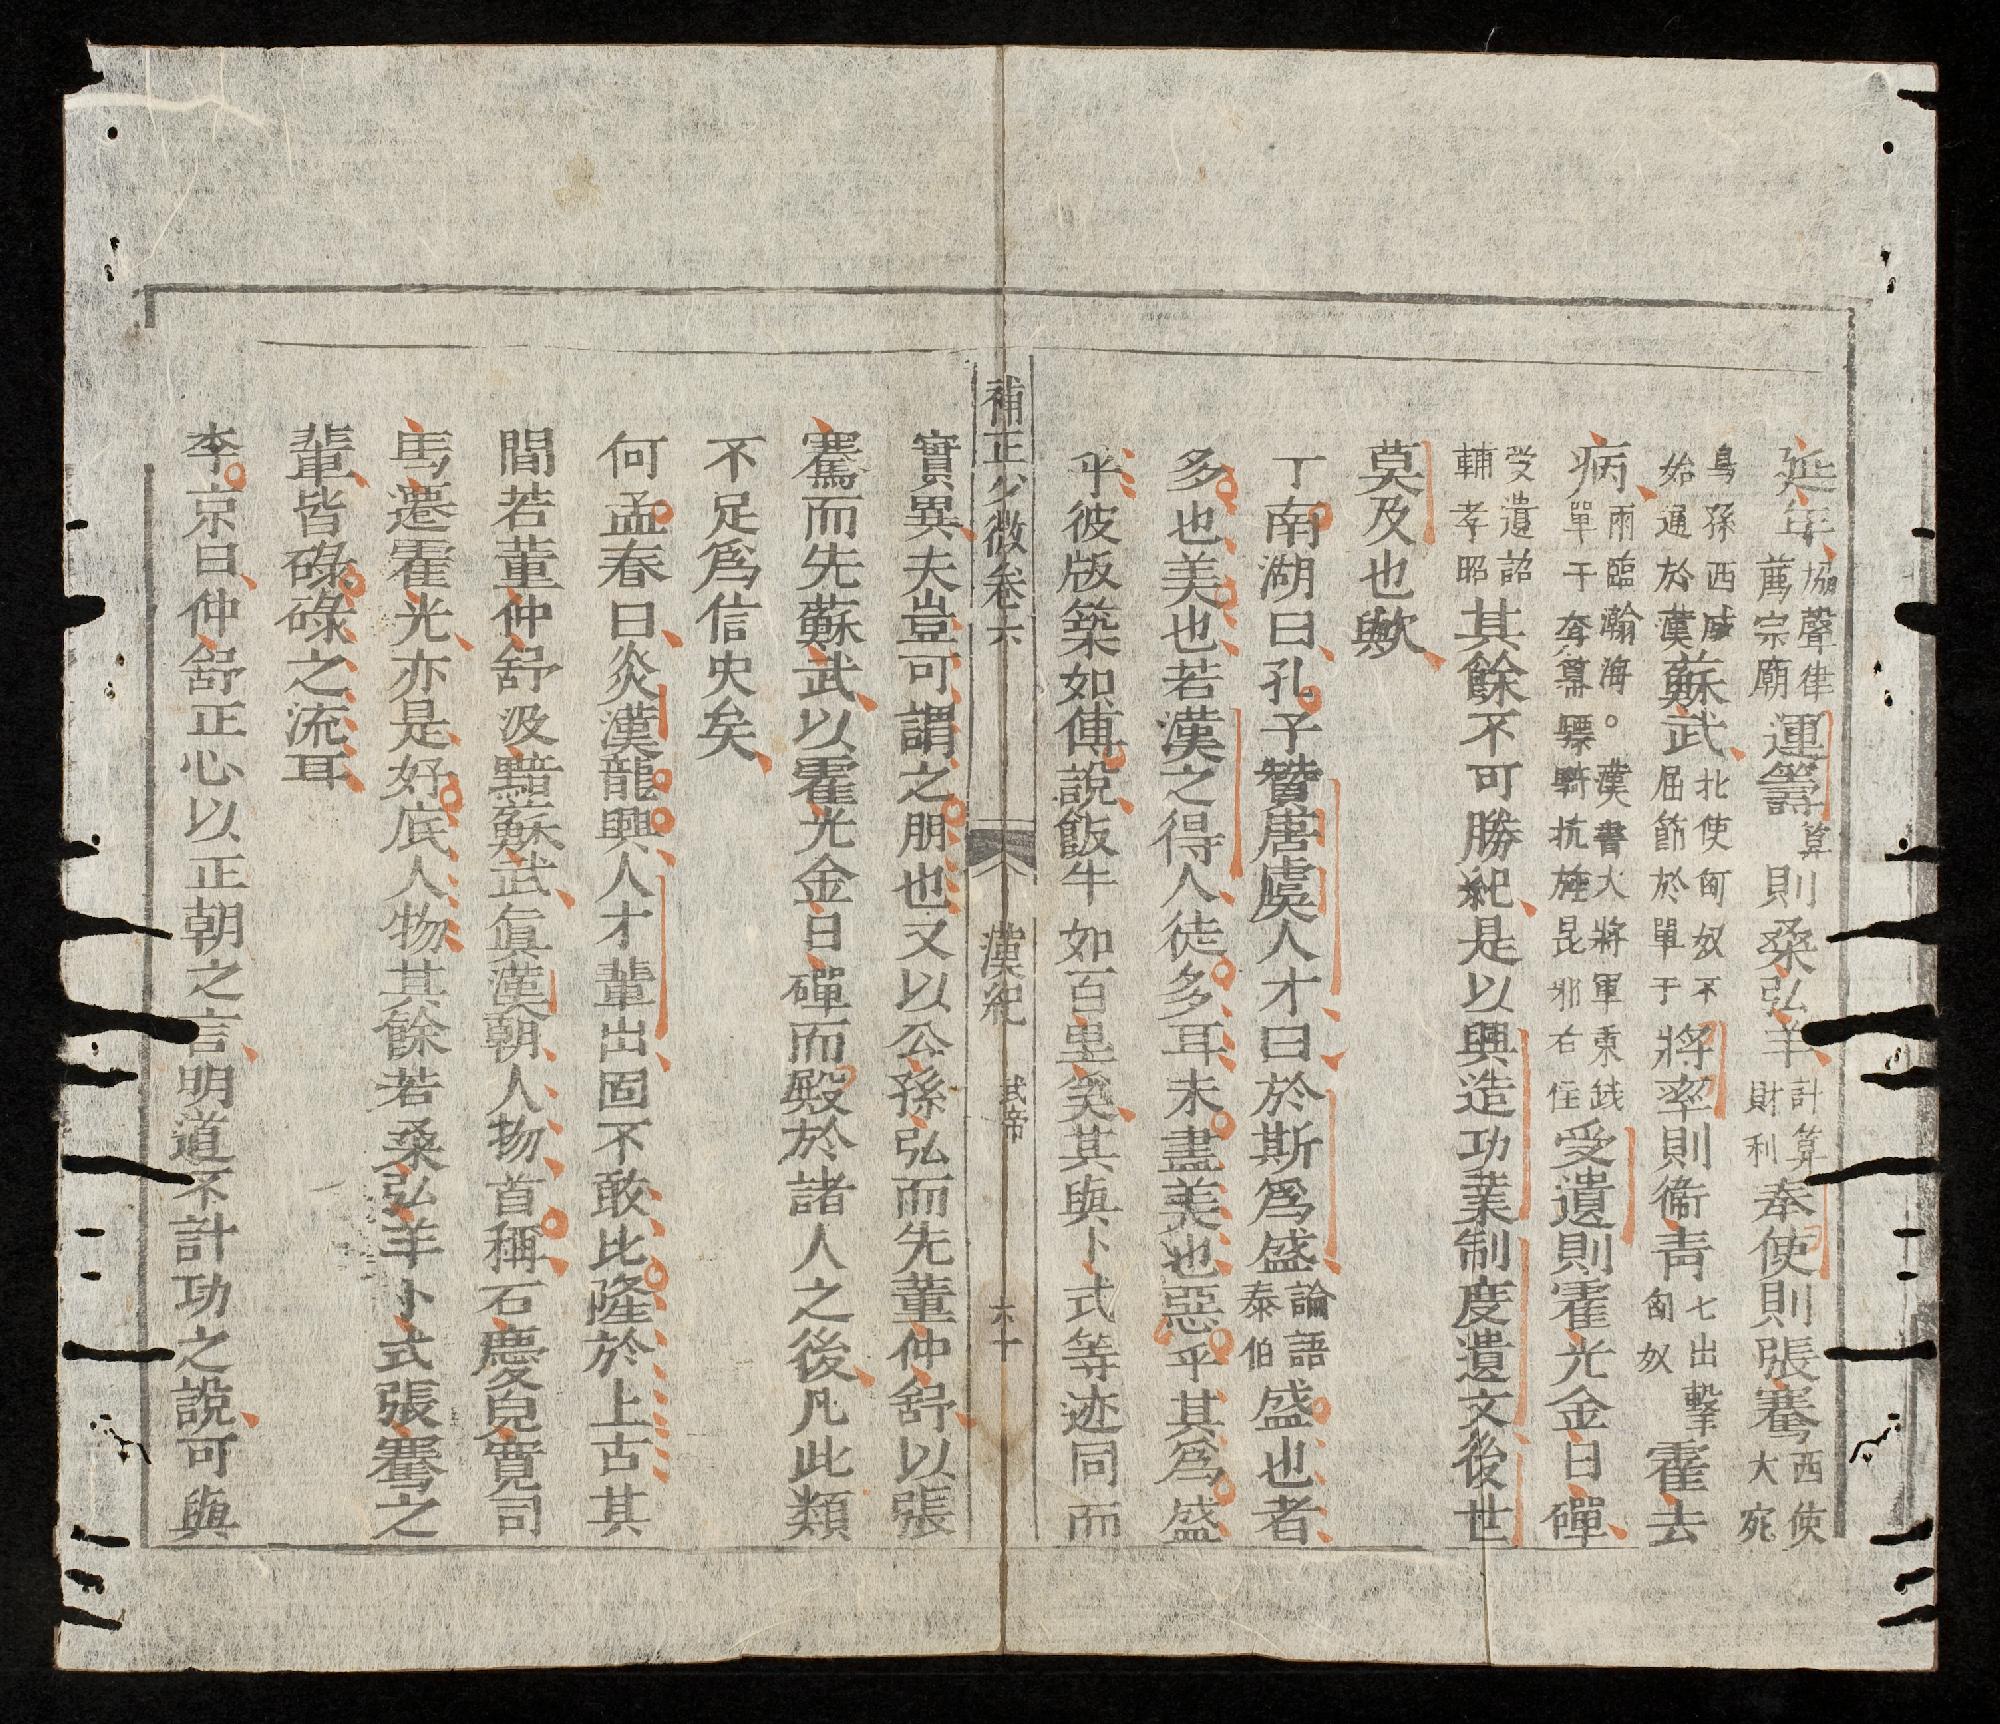 延年協聲律薦宗廟運籌算則桑弘羊計算財利奉使則張騫西使大宛
烏孫西域始通於漢蘇武北使匈奴不屈節於單于將率則衞青七出擊匈奴霍去
病雨臨瀚海。漢書大將軍秉鉞單于奔幕驃騎抗旌昆邪右任受遺則霍光金日磾
受遺詔輔孝昭其餘不可勝紀是以興造功業制度遺文後世
莫及也歟
丁南湖曰孔子贊唐虞人才曰於斯爲盛論語泰伯盛也者
多也美也若漢之得人徒多耳未盡美也惡乎其爲盛
乎彼版築如傅說飯牛如百里奚其與卜式等迹同而
補正少微卷六 漢紀 武帝 六十
實異夫豈可謂之朋也又以公孫弘而先董仲舒以張
騫而先蘇武以霍光金日磾而殿於諸人之後凡此類
不足爲信史矣
何孟春曰炎漢龍興人才輩出固不敢比隆於上古其
間若董仲舒汲黯蘇武眞漢朝人物首稱石慶皃寬司
馬遷霍光亦是好底人物其餘若桑弘羊卜式張騫之
輩皆碌碌之流耳
李京曰仲舒正心以正朝之言明道不計功之說可與